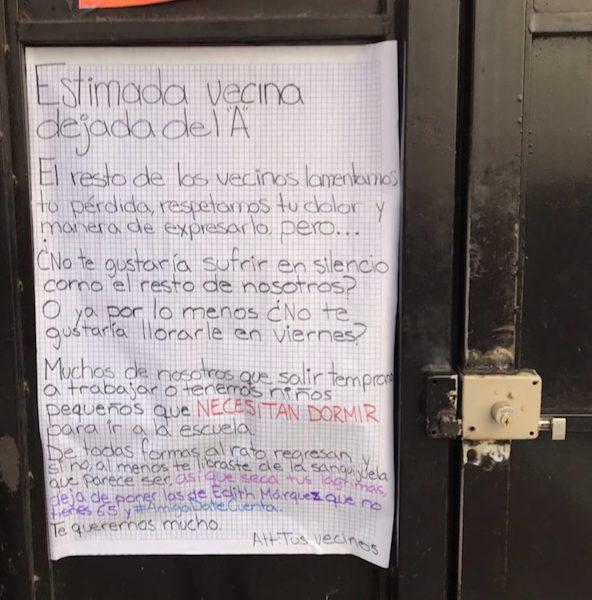 Estimada vecina
dejada del "A"
El resto de los vecinos lamentamos
tu pérdida, respetamos tu dolor y
manera de expresarlo, pero...
¿No te gustaría sufrir en silencio
como el resto de nosotros?
O ya por lo menos ¿No te
gustaría llorarle en viernes?
Muchos de nosotros que salir temprano
a trabajar o tenemos niños
pequeños que NECESITAN DORMIR
para ir a la escuela
De todas formas, al rato regresan y
si no, al menos te libraste de la sanguijuela
que parece ser, así que seca tus lágrimas,
deja de poner las de Edith Márquez que no
tienes 65 y #AmigaDateCuenta.
Te queremos mucho.
Att: Tus vecinos